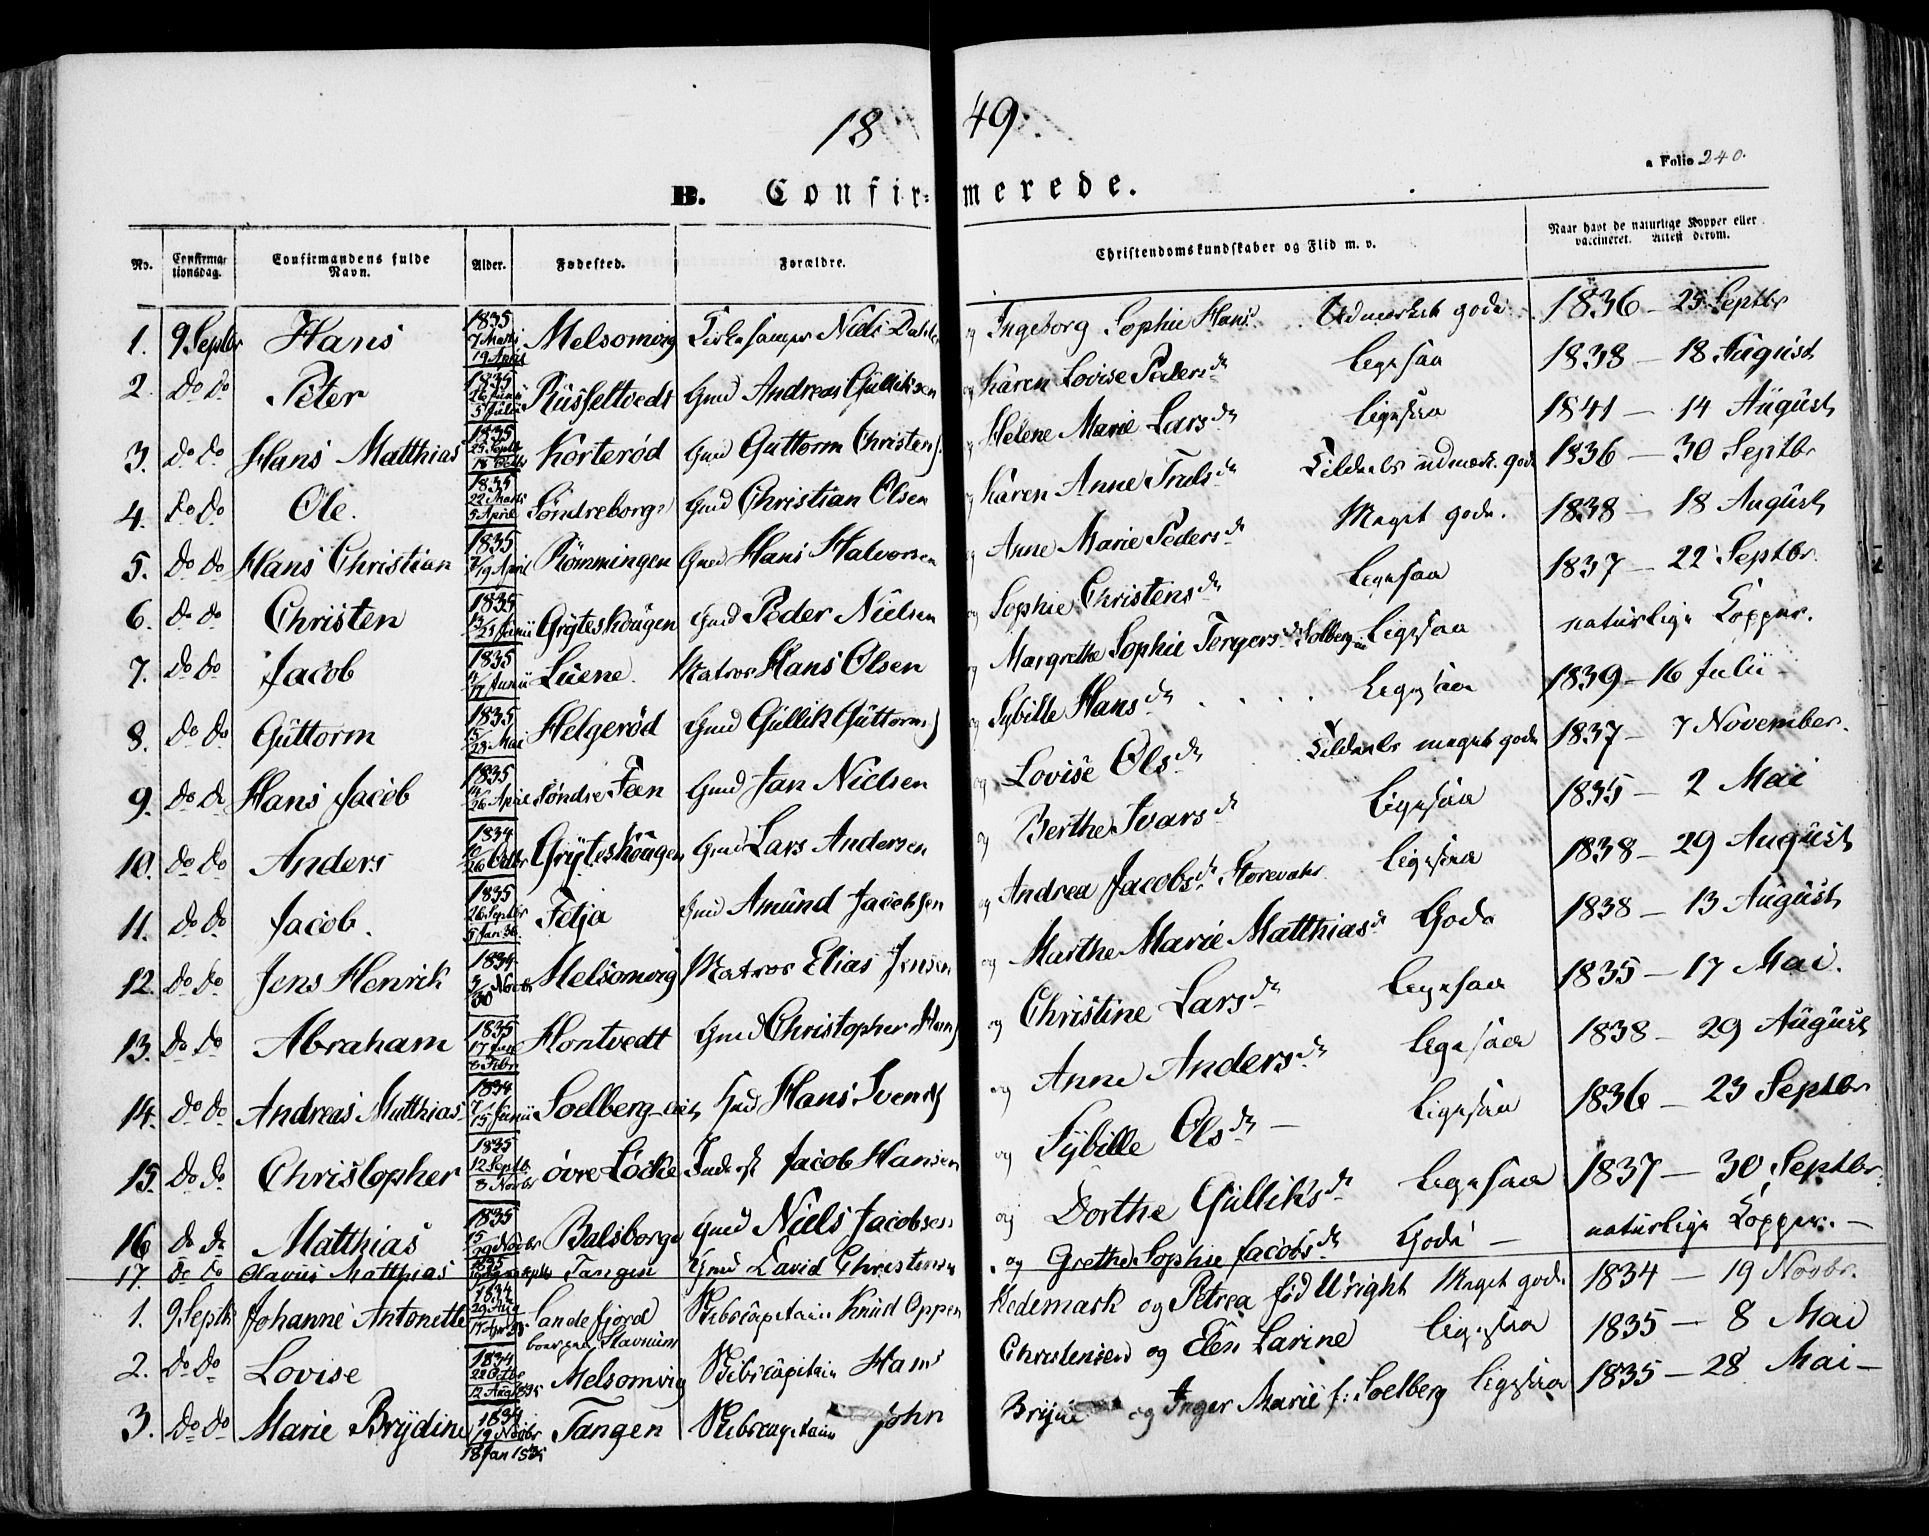 18 49.
a Folio 240.
B. Confir=merede.
No. Confirma-tionsdag. Confirmandens fulde Navn. Alder. Fødested. Forældre. Christendomskundskaber og Flid m. v. Naar havt de naturlige Kopper eller vaccineret. Attest derom.
1. 9 Septbr Hans 1835 7 Marts 19 April Melsomvig Niels og Ingeborg Sophie Hansd. Udmærket gode 1836 - 25 Septbr
2. Do Do Peter 1835 26 Junii 5 Julii Russeltvedt Gmd Andreas Gulliksen og Karen Lovise Pedersd. ligesaa 1838 - 18 August
3. Do Do Hans Matthias 1835 25 Septbr 18 Octbr Korterød Gmd Guttorm Christens. og Helene Marie Larsd. ligesaa 1841 - 14 August
4. Do Do Ole. 1835 22 Marts 5 April Søndreborge Gmd Christian Olsen og Karen Anne Trulsd. Tildeels udmærk. gode 1836 - 30 Septbr
5. Do Do Hans Christian 1835 19 April Rømmingen Gmd Hans Halvorsen og Anne Marie Pedersd. Meget gode. 1838 - 18 August
6. Do Do Christen 1835 Junii Gryteskougen Gmd Peder Nielsen og Sophie Christensd. ligesaa 1837 - 22 Septbr.
7. Do Do Jacob 1835 Junii Luene. Matros Hans Olsen og Margrethe Sophie Torgersd. Solberg ligesaa naturlige Kopper.
8. Do Do Guttorm 1835 Mai Helgerød Gmd Gullik Guttorms. og Sybille Hansd. . . . ligesaa 1839 - 16 Julii
9. Do Do Hans Jacob 1835 26 April Søndre Fæn Gmd Jan Nielsen og Lovise Olsd. Tildeels meget gode 1837 - 7 November.
10. Do Do Anders 1834 26 Octbr Gryteskougen Gmd Lars Andersen og Berthe Ivarsd. ligesaa 1835 - 2 Mai
11. Do Do Jacob. 1835 26 Septbr 3 Jan 36 Fetja Gmd Amund Jacobsen og Andrea Jacobsd. Storevahr ligesaa 1838 - 29 August
12. Do Do Jens Henrik 1834 30 Novbr Melsomvig Matros Elias Jensen og Marthe Marie Matthiasd. Gode 1838 - 13 August
13. Do Do Abraham 1835 17 Jan 8 Febr Hontvedt Gmd Christopher Hans. og Christine Larsd. ligesaa 1835 - 17 Mai.
14. Do Do Andreas Matthias 1834 7/15 Junii Soelberg Gmd Hans Svends. og Anne Andersd. ligesaa 1838 - 29 August
15. Do Do Christopher 1835 12 Septb. 8 Novbr øvre Løcke Jacob Hansen og Sybille Olsd. - ligesaa 1836 - 23 Septbr
16 Do Do Matthias 1835 15/29 Novbr Balsborge Gmd Niels Jacobsen og Dorthe Gulliksd. ligesaa 1837 - 30 Septbr.
17. Do Do Olavus Matthias 1835 Tangen Gmd David Christensen og Grethe Sophie Jacobsd. Gode - naturlige Kopper. -
1. 9 Septb Johanne Antonette 1834 29 Aug Sandefjord boer paa Stavnum Skibscapitain Knud Oppen Hedemark og Petrea fød Wright Meget gode 1834 - 19 Novbr.
2. Do Do Lovise 1834 22 Octbr 12 Aug 1835 Melsomvig Skibscapitain Hans Christensen og Elen Larine ligesaa 1835 - 8 Mai
3. Do Do Marie Brydine 1834 19 Novbr 18 Jan 1835 Tangen Skibscapitain John Bryde og Inger Marie f: Soelberg ligesaa 1835 - 28 Mai -